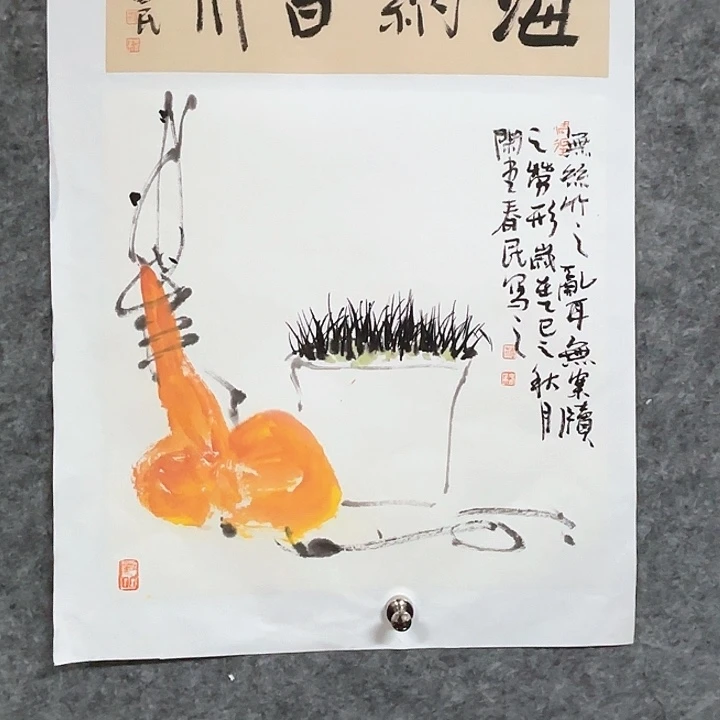 海納百川
民
無絲竹之亂耳無案牘
之勞形歲在乙巳之秋月
閑堂春民写之